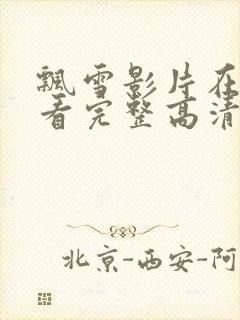 飘雪影片在
看完整高清
北京-西安-阿